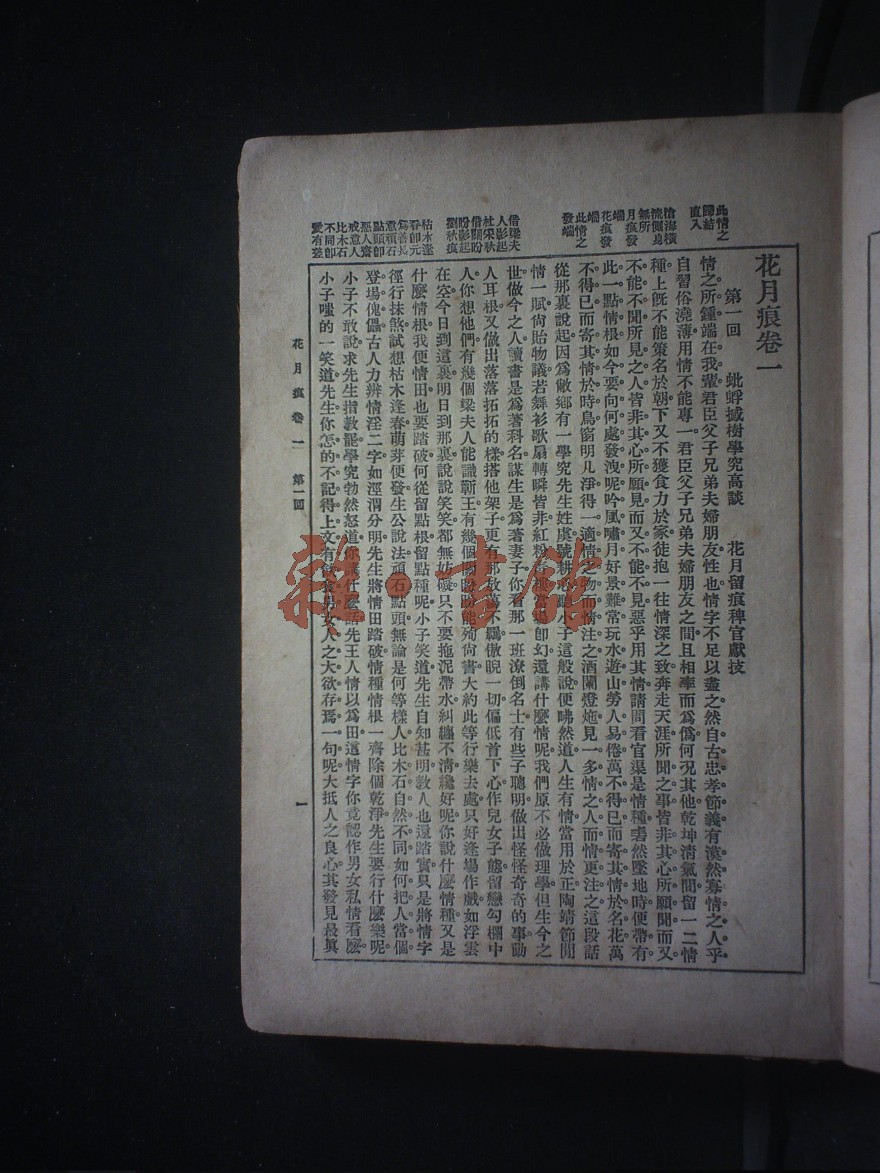 花月痕卷一
第一回　蚍蜉撼樹學究高談　花月留痕稗官獻技
情之所鍾端在我輩君臣父子兄弟夫婦朋友性也情字不足以盡之然自古忠孝節義有漠然寡情之人乎
自習俗澆薄用情不能專一君臣父子兄弟夫婦朋友之間且相率而爲僞何況其他乾坤清氣間留一二情
種上旣不能策名於朝下又不獲食力於家徒抱一往情深之致奔走天涯所聞之事皆非其心所願聞而又
不能不聞所見之人皆非其心所願見而又不能不見惡乎用其情請問看官渠是情種砉然墜地時便帶有
此一點情根如今要向何處發洩呢吟風嘯月好景難常玩水遊山勞人易倦萬不得已而寄其情於名花萬
不得已而寄其情於時鳥窗明几淨得一適情之物而情注之酒闌燈灺見一多情之人而情更注之這段話
從那裏說起因爲敝鄉有一學究先生姓虞號耕心聽小子這般說便咈然道人生有情當用於正陶靖節閒
情一賦尙貽物議若舞衫歌扇轉瞬皆非紅粉青樓當場卽幻還講什麼情呢我們原不必做理學但生今之
世做今之人讀書是爲著科名謀生是爲著妻子你看那一班潦倒名士有些子聰明做出怪怪奇奇的事動
人耳根又做出落落拓拓的樣搭他架子更有那放蕩不羈傲睨一切偏低首下心作兒女子態留戀勾欄中
人你想他們有幾個梁夫人能識蘄王有幾個關盼盼能殉尙書大約此等行樂去處只好逢場作戲如浮雲
在空今日到這裏明日到那裏說說笑笑都無妨礙只不要拖泥帶水糾纏不清纔好呢你說什麼情種又是
什麼情根我便情田也要踏破何從留點根留點種呢小子笑道先生自知甚明教人也還踏實只是將情字
徑行抹煞試想枯木逢春萌芽便發生公說法頑石點頭無論是何等樣人比木石自然不同如何把人當個
登場傀儡古人力辨情淫二字如涇渭分明先生將情田踏破情種情根一齊除個乾淨先生要行什麼樂呢
小子不敢說求先生指教罷學究勃然怒道你講什麼話先王人情以爲田這情字你竟認作男女私情看麼
小子嗤的一笑道先生你怎的不記得上文有飲食男女人之大欲存焉一句呢大抵人之良心其發見最眞
此情之
歸結
直入
滄海橫
流側身
無所
月痕發
端
花痕發
端
此情之
發端
借梁夫
人影起
杜采秋
借關盼
盼影起
劉秋痕
枯木逢
春卽元
爲善長
意頑石
點頭卽
惡人齋
戒意人
比木石
不同卽
愛有差
花月痕　卷一　第一回
一
雜·書館